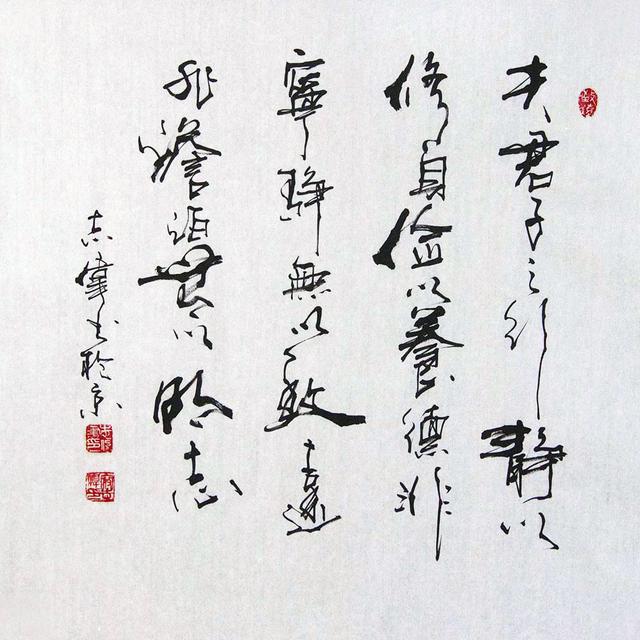 夫君子之行靜以
修身儉以養德非
寧靜無以致遠
非澹泊無以明志
志偉書於京